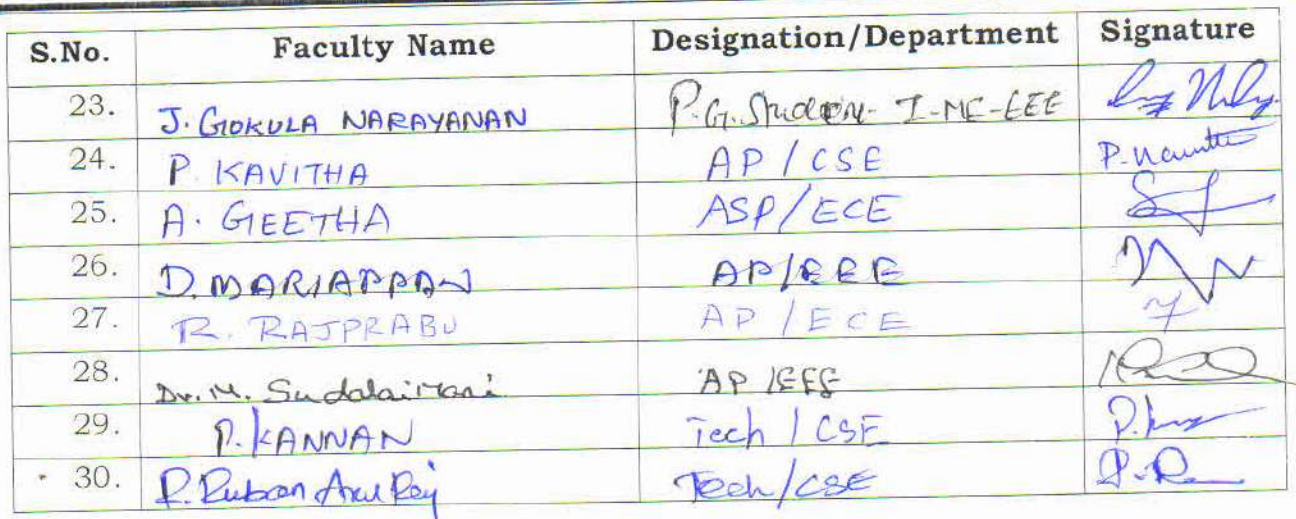 S.No. Faculty Name Designation/Department Signature
23. J. GOKULA NARAYANAN P.G. Student - I-ME-EEE
24. P. KAVITHA AP / CSE P. Kavitha
25. A. GEETHA ASP/ECE
26. D. MARIAPPAN AP/EEE
27. R. RAJPRABU AP / ECE
28. Dr. M. Sudalaimani AP /EEE
29. P. KANNAN Tech / CSE
30. P. Ruban Arul Raj Tech/CSE